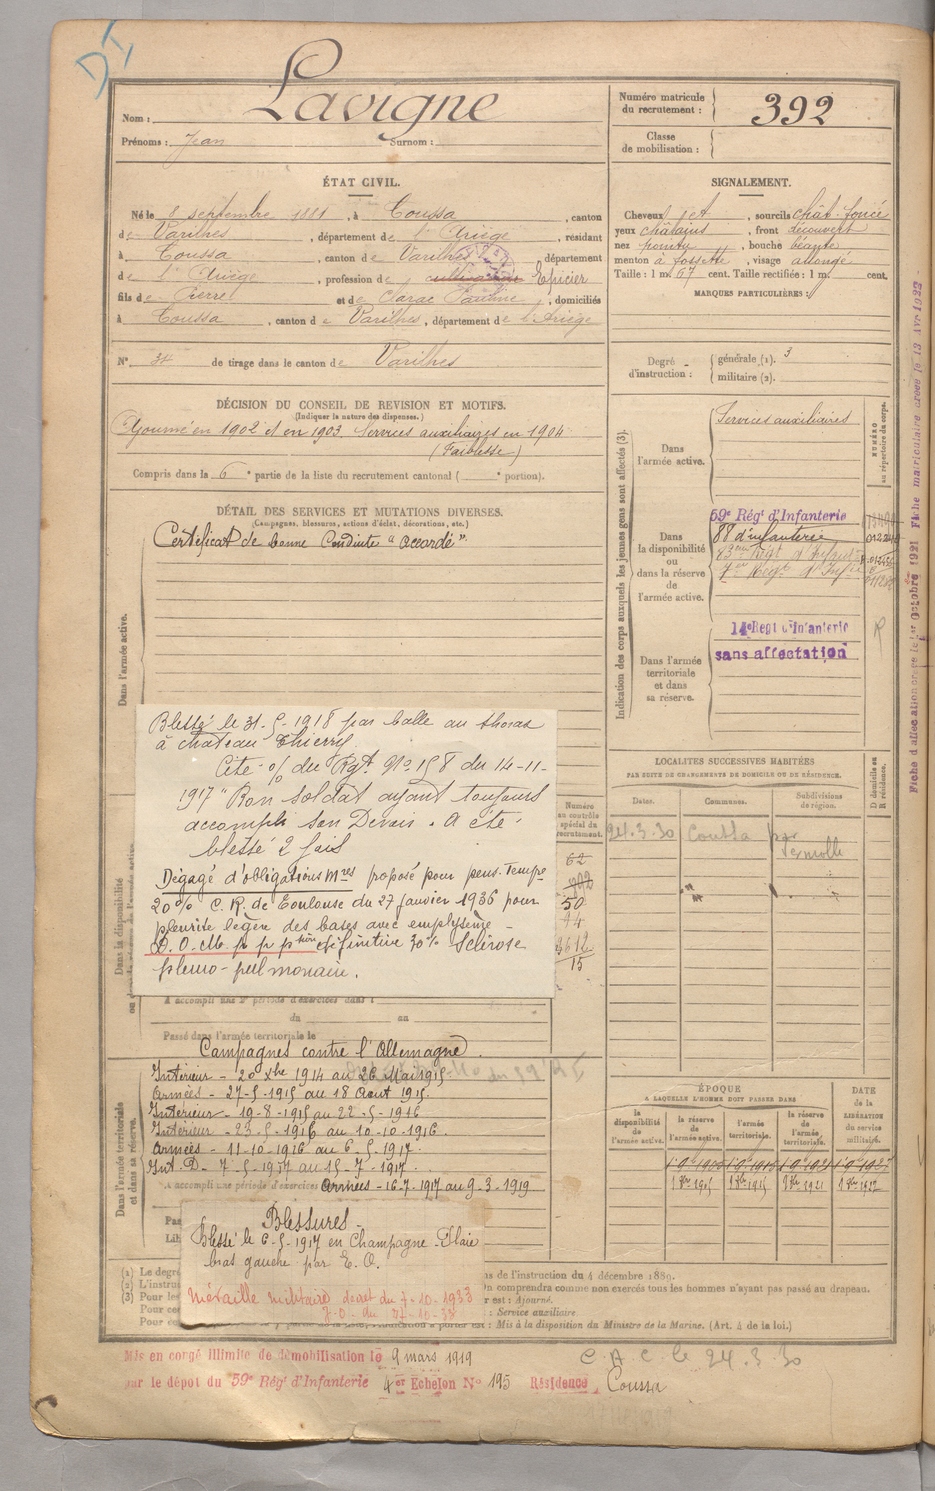 Lavigne
Nom :
Prénoms : Jean Surnom :
Numéro matricule du recrutement : 392
Classe de mobilisation :
ÉTAT CIVIL.
Né le 8 septembre 1881, à Coussa, canton
de Varilhes, département de l'Ariège, résidant
à Coussa, canton de Varilhes, département
de l'Ariège, profession de cultivateur Epicier
fils de Pierre et de Clarac Pauline, domiciliés
à Coussa, canton de Varilhes, département de l'Ariège
N° 34 de tirage dans le canton de Varilhes
SIGNALEMENT.
Cheveux et, sourcils chât. foncé
yeux châtains, front découvert
nez pointu, bouche béante
menton à fossette, visage allongé
Taille : 1 m. 67 cent. Taille rectifiée : 1 m. cent.
MARQUES PARTICULIÈRES :
Degré d'instruction : générale (1). 3
militaire (2).
DÉCISION DU CONSEIL DE REVISION ET MOTIFS.
(Indiquer la nature des dispenses.)
Ajourné en 1902 et en 1903. Services auxiliaires en 1904
(Faiblesse)
Compris dans la 6e partie de la liste du recrutement cantonal ( e portion).
DÉTAIL DES SERVICES ET MUTATIONS DIVERSES.
(Campagnes, blessures, actions d'éclat, décorations, etc.)
Certificat de bonne Conduite "accordé"
Dans l'armée active.
Indication des corps auxquels les jeunes gens sont affectés (3).
NUMÉRO au répertoire du corps.
Dans l'armée active.
Services auxiliaires
Dans la disponibilité ou dans la réserve de l'armée active.
59e Régt d'Infanterie
88 d'infanterie
83me Régt d'Infant
Dans l'armée territoriale et dans sa réserve.
14e Regt d'Infanterie
sans affectation
Fiche d'affectation créée le 1er Octobre 1921 Fiche matriculaire créée le 13 Avr 1922
Blessé le 31-5-1918 par balle au thorax
à Château Thierry.
Cité o/ du Rgt No 158 du 14-11-
1917 "Bon soldat ayant toujours
accompli son Devoir. A été
blessé 2 fois
Dégagé d'obligations Mres proposé pour pens. Tempre
20% C. R. de Toulouse du 27 janvier 1936 pour
pleurite légère des bases avec emphysème -
D. O. M. p p p définitive 30% Sclérose
pleuro-pulmonaire.
Numéro au contrôle spécial du recrutement.
62
892
50
94
3612
15
LOCALITÉS SUCCESSIVES HABITÉES
PAR SUITE DE CHANGEMENTS DE DOMICILE OU DE RÉSIDENCE.
Dates. Communes. Subdivisions de région. D domicile ou R résidence.
24.3.30 Coussa par
Vernolle
A accompli une 2e période d'exercices dans l
du au
Passé dans l'armée territoriale le
Dans l'armée territoriale et dans sa réserve.
Campagnes contre l'Allemagne.
Intérieur - 20 Xbre 1914 au 26 Mai 1915
Armées - 27-5-1915 au 18 Aout 1915.
Intérieur - 19-8-1915 au 22-5-1916
Intérieur - 23-5-1916 au 10-10-1916.
Armées - 11-10-1916 au 6-5-1917.
Int. D - 7-5-1917 au 15-7-1917.
A accompli une période d'exercices Armées - 16-7-1917 au 9-3-1919
Blessures.
Blessé le 6-5-1917 en Champagne - Plaie
bras gauche par E. O.
Médaille militaire décret du 7-10-1933
ÉPOQUE
A LAQUELLE L'HOMME DOIT PASSER DANS
la disponibilité de l'armée active. la réserve de l'armée active. l'armée territoriale. la réserve de l'armée territoriale. DATE de la LIBÉRATION du service militaire.
(1) Le degré
ns de l'instruction du 4 décembre 1889.
(2) L'instruc
On comprendra comme non exercés tous les hommes n'ayant pas passé au drapeau.
(3) Pour les
er est : Ajourné.
Pour ce
: Service auxiliaire
Pour ce
est : Mis à la disposition du Ministre de la Marine. (Art. 4 de la loi.)
Mis en congé illimité de démobilisation le 9 mars 1919
C. A. C. le 24.3.30
par le dépôt du 59e Régt d'Infanterie 4er Echelon No 195 Résidence, Coussa